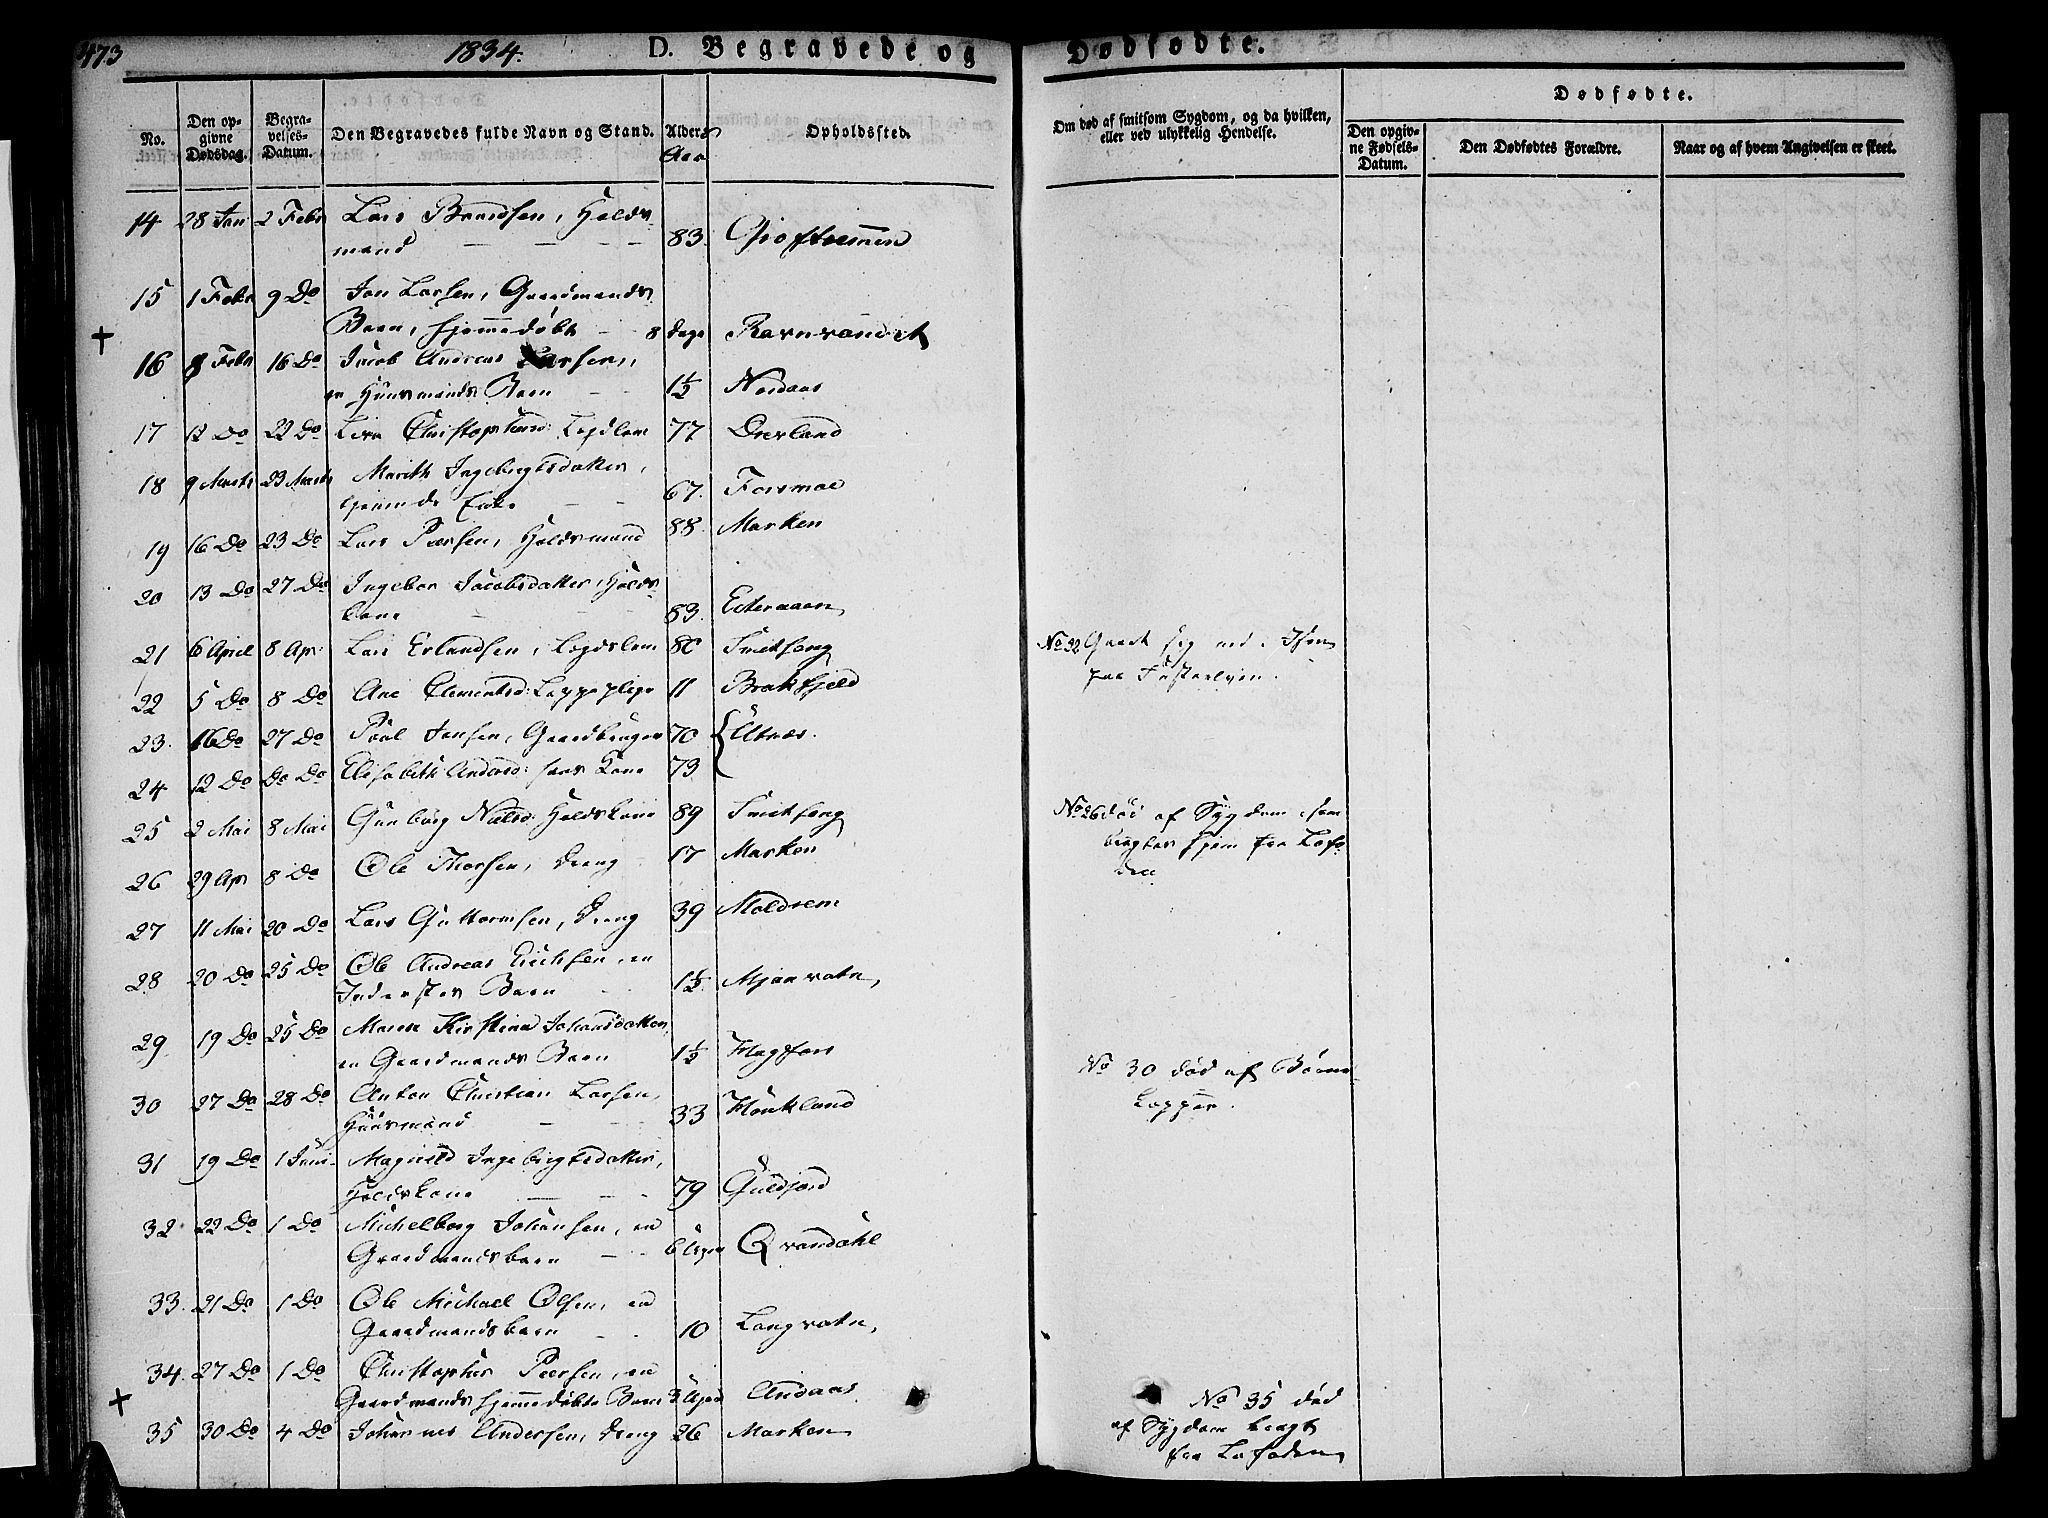 473
1834.
D. Begravede og
Dødfødte.
No.
Den opgivne Dødsdag.
Begravelses-Datum.
Den Begravedes fulde Navn og Stand.
Alder Aar
Opholdssted.
Om død af smitsom Sygdom, og da hvilken, eller ved ulykkelig Hendelse.
Dødfødte.
Den opgivne Fødsels-Datum.
Den Dødfødtes Forældre.
Naar og af hvem Angivelsen er skeet.
14 28 Jan 2 Febr Lars Baardsen, Holds
mand 83.
15 1 Febr 9 Do Jon Larsen, Gaardmands
Barn, hjemmedøbt 8 Dage Ravnvandet
16 8 Febr 16 Do Jacob Andreas Larsen,
en Huusmands Barn 1½ Nordaas
17 12 Do 22 Do Christophersd: Lægdlem 77 Drevland
18 9 Marts 23 Marts Marith Ingebrigtsdatter,
Enke 67. Forsmoe
19 16 Do 23 Do Lars Pærsen, Holdsmand 88. Marken
20 13 Do 27 Do Ingebor Jacobsdatter, Holds
kone 83. Eiteraaen
21 6 April 8 Apr: Lars Erlandsen, Lægdslem 80 Smitseng
22 5 Do 8 Do Ane Clementsd: Lappepige 11 Brakfjeld
23. 16 Do 27 Do Povl Jonsen, Gaardbruger 70 Utnæs.
24 12 Do Do Do Elisabeth Andersd: hans Kone 73
25 2 Mai 8 Mai Gunborg Nielsd: Holdskone 89 Smitseng
26 29 Apr 8 Do Ole Thorsen, Dreng 17 Marken
27 11 Mai 20 Do Lars Guttormsen, Dreng 39 Moldrem
28 20 Do 25 Do Ole Andreas Erichsen, en
Inderstes Barn 1½ Mjaavatn,
29 19 Do 25 Do Maren Kirstina Johansdatter,
en Gaardmands Barn 1½ Hagfors
30 27 Do 28 Do Anton Christian Larsen,
Huusmand 33 Haukland
31 19 Do 1 Juni Magnild Ingebrigtsdatter,
Holdskone 79
32 22 Do 1 Do Michelborg Johansen, en
Gaardmandsbarn 6 Uger Qvandahl
33. 21 Do 1 Do Ole Michael Olsen, en
Gaardmandsbarn 10 Langvatn,
34. 27 Do 1 Do Christopher Pærsen, en
Gaardmands hjemmedøbte Barn 3 Uger Andaas
35 30 Do 4 Do Johannes Andersen, Dreng 26 Marken
No 22 Gaaet sig ned i Isen
paa Fusterelven.
No 26 død af Sygdom, som
bragtes hjem fra Lofo
den
No 30 død af Børne
Kopper.
No 35 død
af Sygdom bragt
fra Lofoden